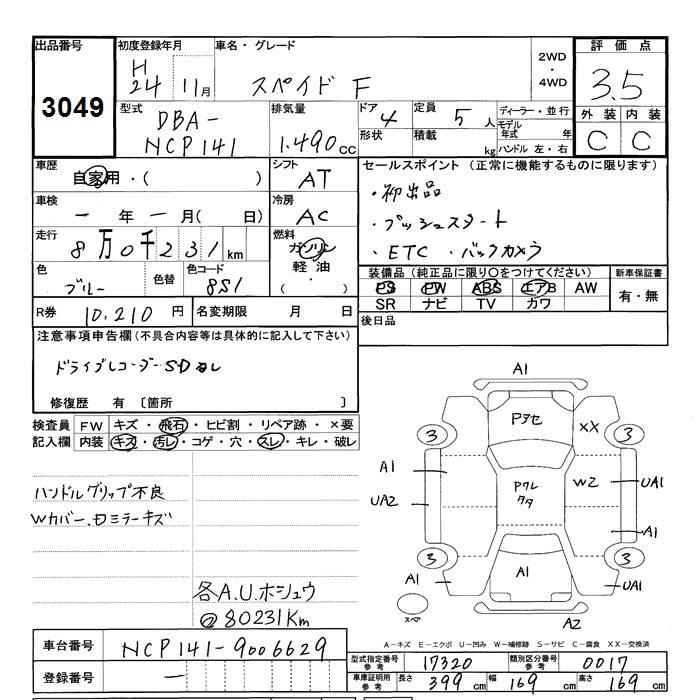 出品番号 初度登録年月 車名・グレード 2WD ・ 4WD 評価点
3049 H 24 11月 スペイド F 3.5
型式 排気量 ドア 4 定員 5 人 ディーラー・並行 外装 内装
DBA-NCP141 1.490 cc 形状 積載 kg モデル年式 年 C C
ハンドル 左・右
車歴 自家用・( ) シフト AT セールスポイント (正常に機能するものに限ります)
車検 ー 年 ー 月( 日) 冷房 AC ・初出品
走行 8万0千231km 燃料 ガソリン 軽油 ・( ) ・プッシュスタート
・ETC ・バックカメラ
色 ブルー 色替 色コード 8S1 装備品 (純正品に限り○をつけてください) 新車保証書
PS PW ABS エアB AW 有・無
SR ナビ TV カワ
R券 10.210 円 名変期限 月 日 後日品
注意事項申告欄(不具合内容等は具体的に記入して下さい)
ドライブレコーダーSDなし
修復歴 有 〔箇所 〕
検査員 FW キズ・飛石・ヒビ割・リペア跡・×要
記入欄 内装 キズ・汚レ・コゲ・穴・スレ・キレ・破レ
ハンドルグリップ不良
Wカバー、
ミラーキズ
各A.U.ホシュウ
@80231Km
A1
Pアセ XX
3 3
A1 Pクレ W2 UA1
UA2 クタ
A1
3 3
A1 A1 UA1
スペア A2
A－キズ E－エクボ U－凹み W－補修跡 S－サビ C－腐食 XX－交換済
車台番号 NCP141-9006629
登録番号 ー
型式指定番号 参考 17320 類別区分番号 参考 0017
車庫証明用 参考 長さ 399 cm 幅 169 cm 高さ 169 cm